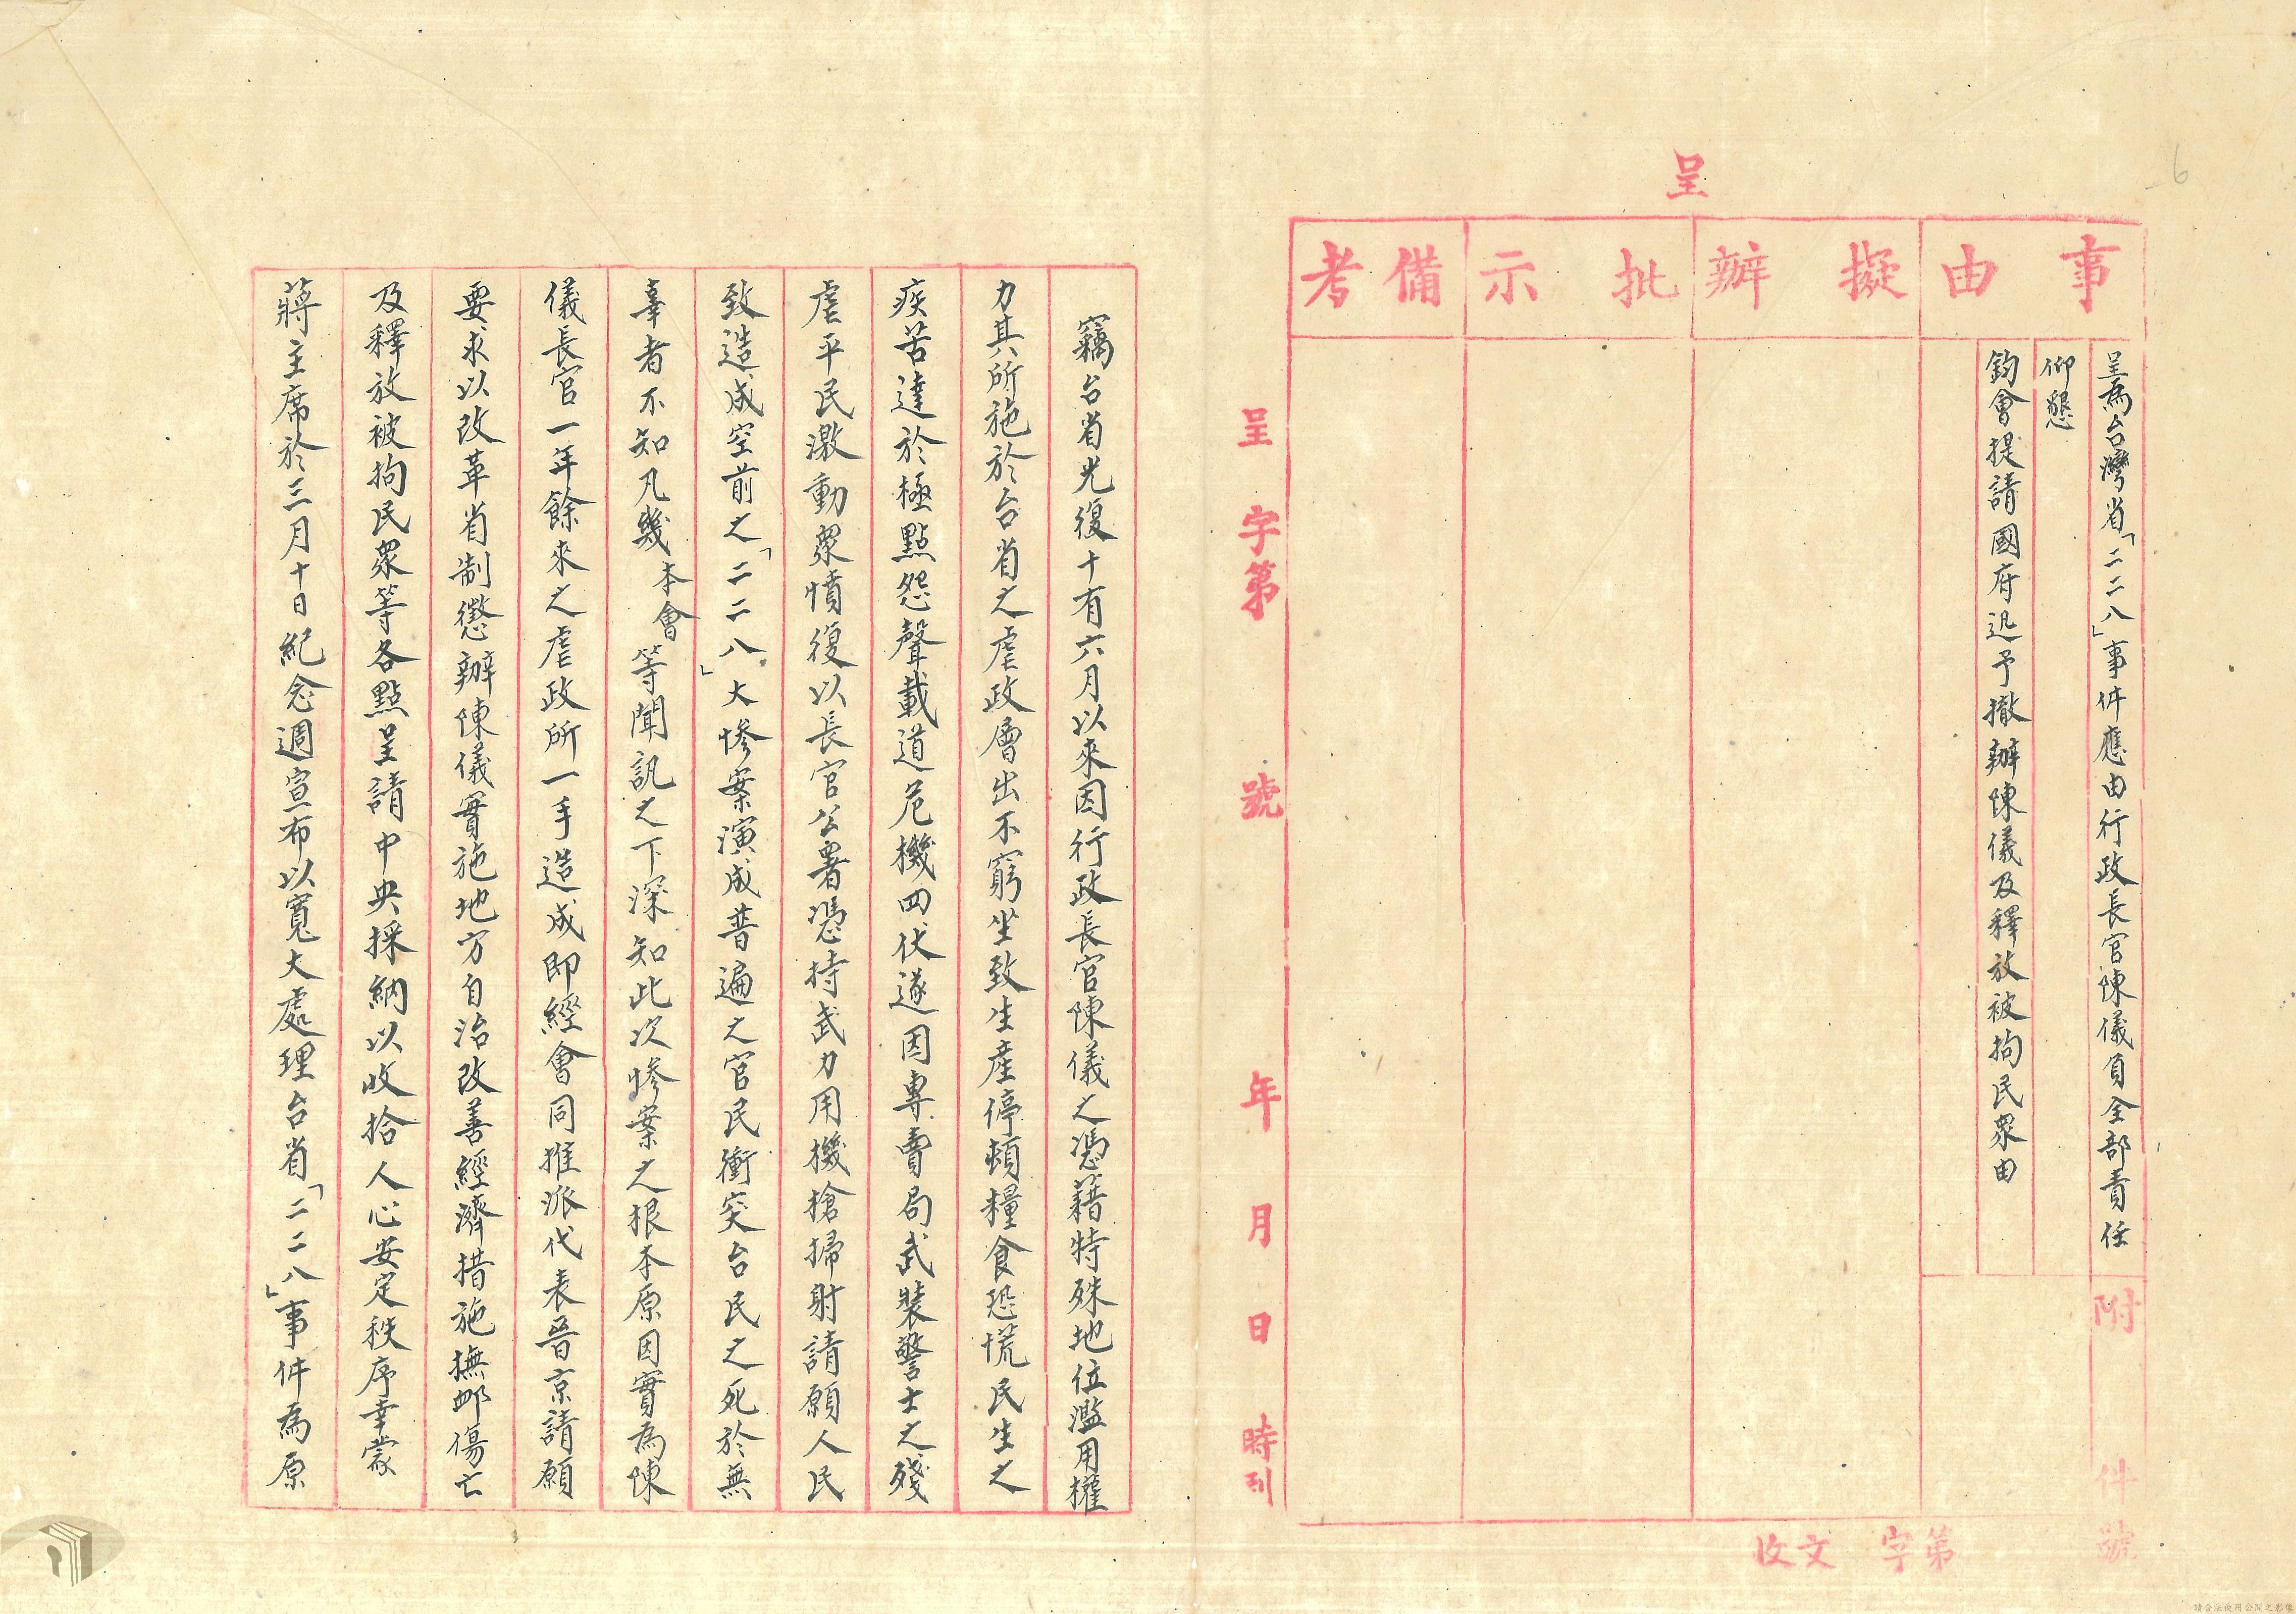 6
呈
事由
擬辦
批示
備考
呈為台灣省「二二八」事件應由行政長官陳儀負全部責任
仰懇
鈞會提請國府迅予撤辦陳儀及釋放被拘民眾由
附件
收文 字第 號
呈 字第 號 年 月 日 時刊
竊台省光復十有六月以來因行政長官陳儀之憑藉特殊地位濫用權
力其所施於台省之虐政層出不窮坐致生產停頓糧食恐慌民生之
疾苦達於極點怨聲載道危機四伏遂因專賣局武裝警士之殘
虐平民激動眾憤復以長官公署憑持武力用機槍掃射請願人民
致造成空前之「二二八」大慘案演成普遍之官民衝突台民之死於無
辜者不知凡幾本會等聞訊之下深知此次慘案之根本原因實為陳
儀長官一年餘來之虐政所一手造成即經會同推派代表晉京請願
要求以改革省制懲辦陳儀實施地方自治改善經濟措施撫卹傷亡
及釋放被拘民眾等各點呈請中央採納以收拾人心安定秩序幸蒙
蔣主席於三月十日紀念週宣布以寬大處理台省「二二八」事件為原
請合法使用公開之影像